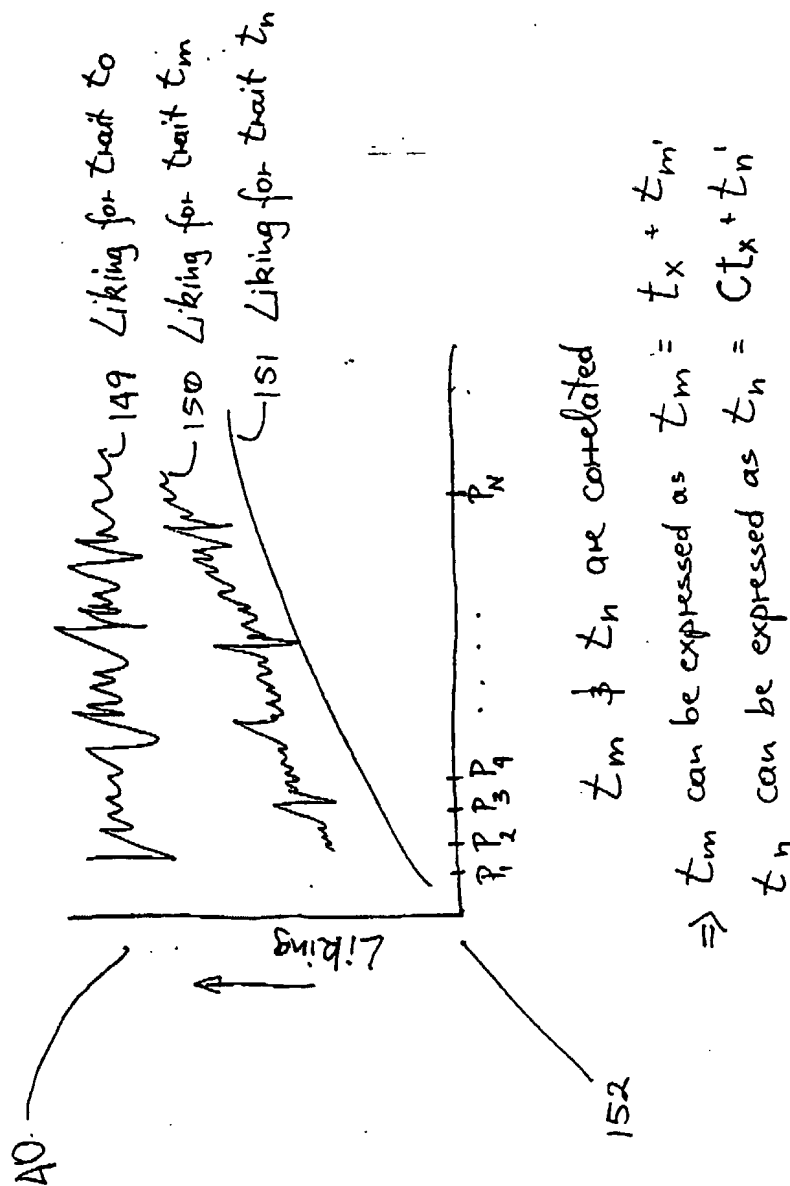 40
149 Liking for trait t0
150 Liking for trait tm
151 Liking for trait tn
Liking
P1 P2 P3 P4 . . . . PN
152
tm & tn are correlated
⇒ tm can be expressed as tm = tx + tm'
tn can be expressed as tn = Ctx + tn'